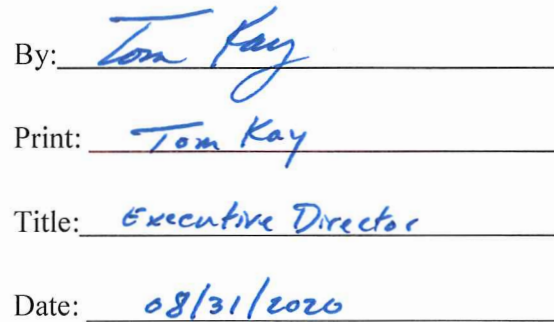 By: Tom Kay
Print: Tom Kay
Title: Executive Director
Date: 08/31/2020